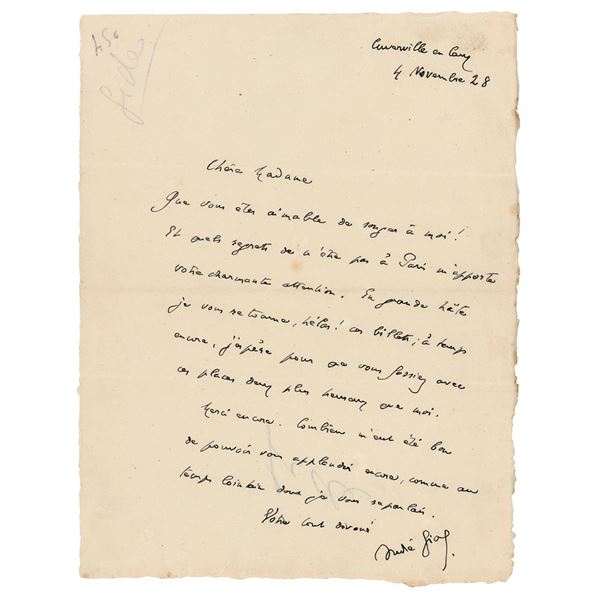 450
Gide
Cuverville en Caux
4 Novembre 28
Chère Madame
Que vous êtes aimable de songer à moi !
Et quels regrets de n'être pas à Paris m'apporte
votre charmante attention. En grande hâte
je vous retourne, hélas ! ces billets ; à temps
encore, j'espère pour que vous fassiez avec
ces places deux plus heureux que moi.
Merci encore. Combien m'eut été bon
de pouvoir vous applaudir encore, comme au
temps lointain dont je vous reparlais.
Votre tout dévoué
André Gide.